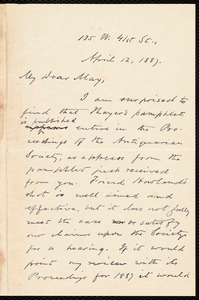 125 W. 41st St.,
April 12, 1887.
My Dear May,
I am surprised to
find that Thayer's pamphlet
is published
entire in the Pro-
ceedings of the Antiquarian
Society, as appears from the
pamphlet just received
from you. Friend Newlands
shot is well aimed and
effective, but it does not fully
meet the case or satisfy
our claims upon the Society
for a hearing. If it would
print my review with its
Proceedings for 1887 it would